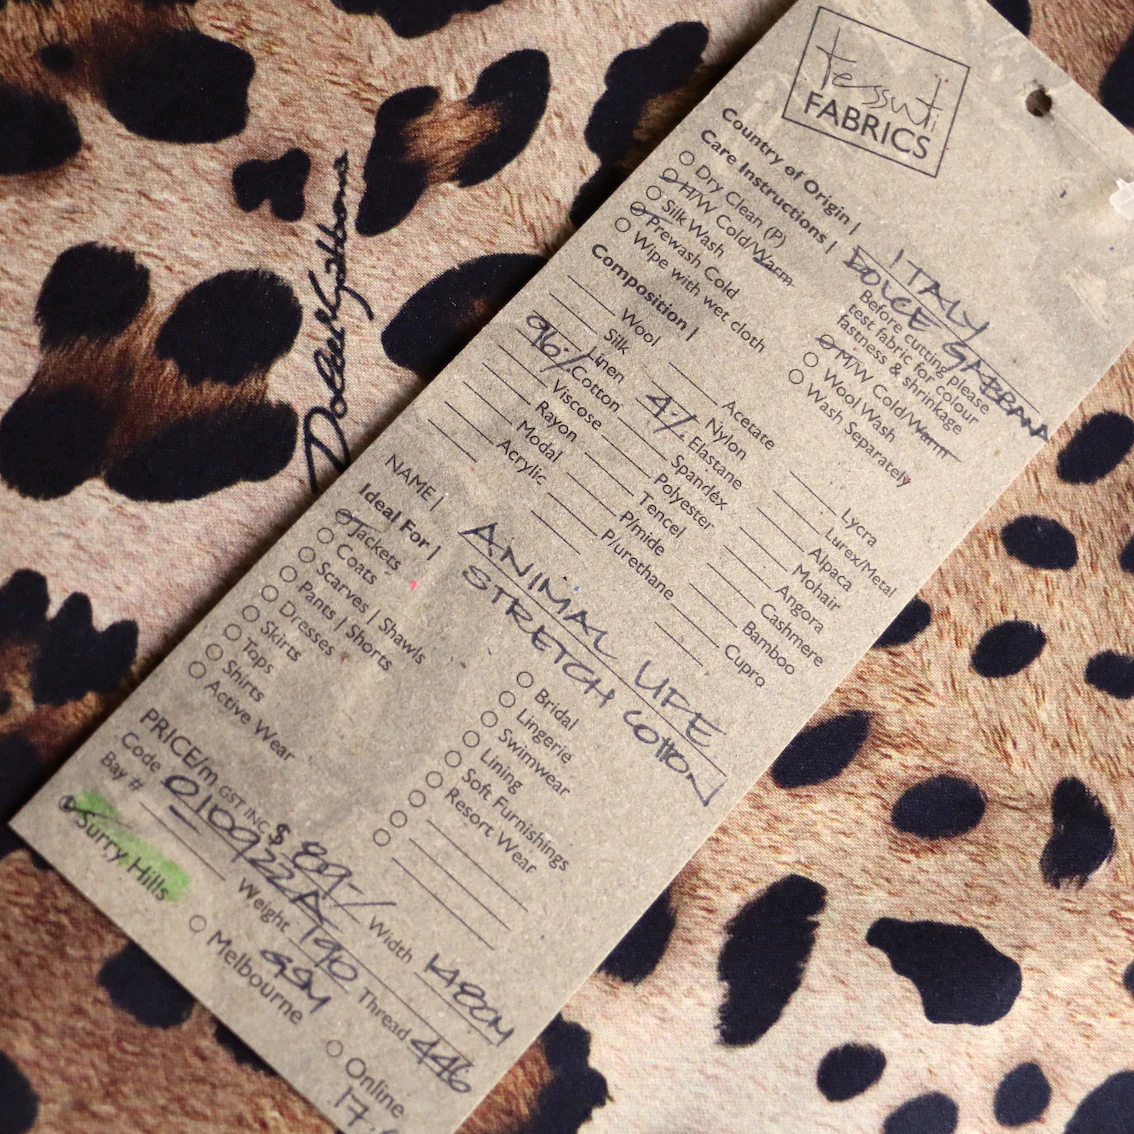 tessuti
FABRICS
Country of Origin | ITALY
DOLCE GABBANA
Care Instructions |
Dry Clean (P)
H/W Cold/Warm
Silk Wash
Prewash Cold
Wipe with wet cloth
Before cutting please
test fabric for colour
fastness & shrinkage
M/W Cold/Warm
Wool Wash
Wash Separately
Composition |
Wool
Silk
Linen
96% Cotton
Viscose
Rayon
Modal
Acrylic
Acetate
Nylon
4% Elastane
Spandex
Polyester
Tencel
P/mide
P/urethane
Lycra
Lurex/Metal
Alpaca
Mohair
Angora
Cashmere
Bamboo
Cupro
NAME | ANIMAL LIFE
STRETCH COTTON
Ideal For |
Jackets
Coats
Scarves | Shawls
Pants | Shorts
Dresses
Skirts
Tops
Shirts
Active Wear
Bridal
Lingerie
Swimwear
Lining
Soft Furnishings
Resort Wear
PRICE/m GST INC $ 89-/ Width 148CM
Code 010922A Weight 190 GSM Thread 446
Bay #
Surry Hills
Melbourne
Online
17.
Dolce & Gabbana